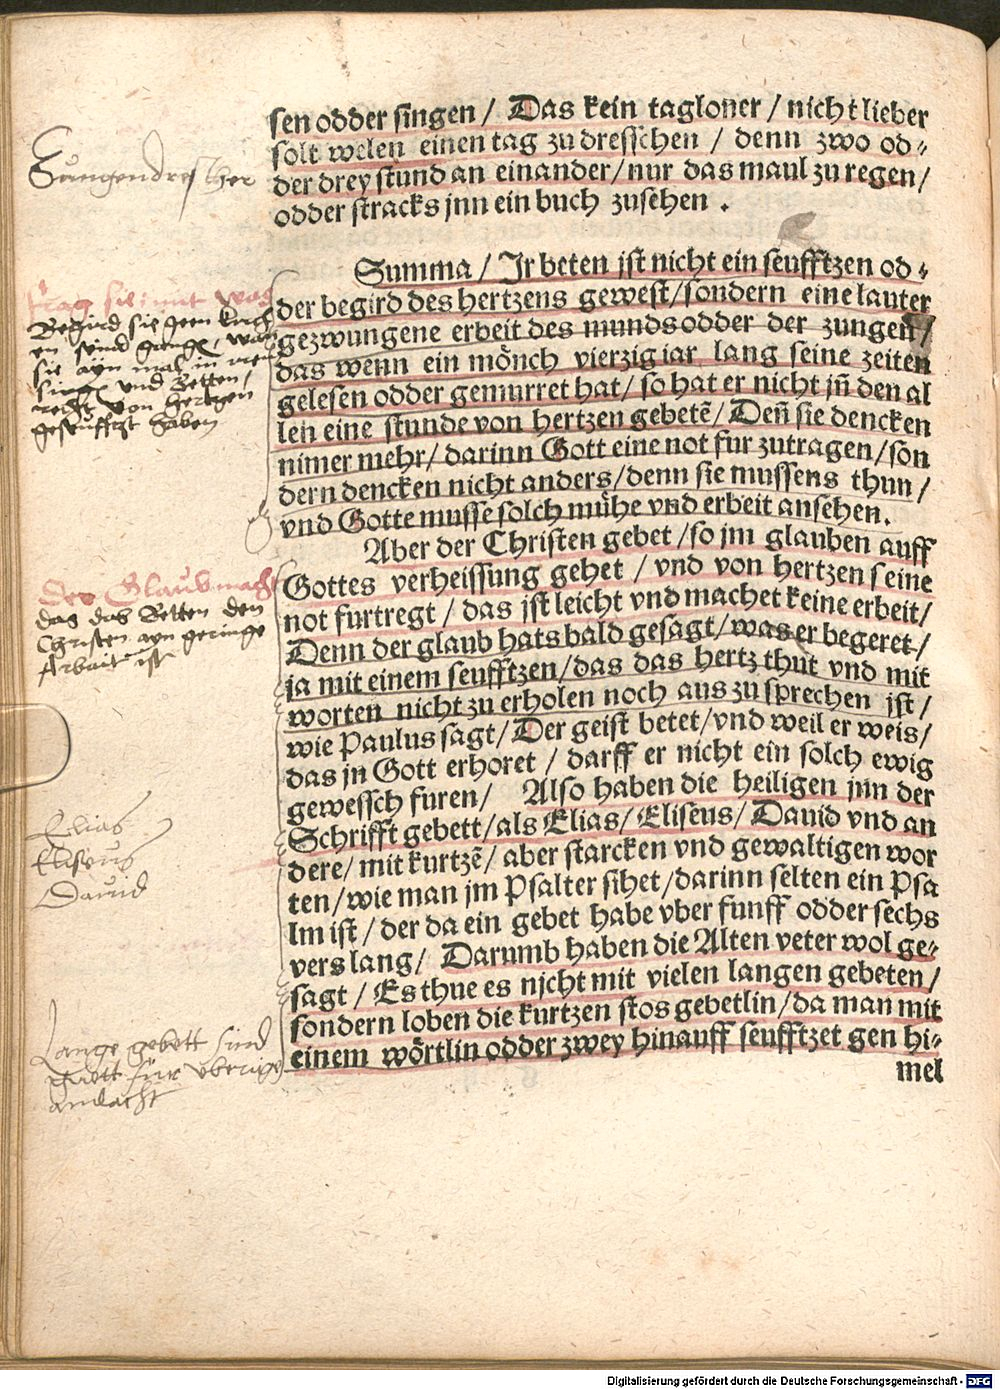 sen odder singen / Das kein tagloner / nicht lieber
solt welen einen tag zu dresschen / denn zwo od⸗
der drey stund an einander / nur das maul zu regen /
odder stracks jnn ein buch zusehen .
Summa / Jr beten jst nicht ein seufftzen od⸗
der begird des hertzens gewest / sondern eine lauter
gezwungene erbeit des munds odder der zungen /
das wenn ein mönch vierzig iar lang seine zeiten
gelesen odder gemurret hat / so hat er nicht jñ den al
len eine stunde von hertzen gebetẽ / Deñ sie dencken
nimer mehr / darinn Gott eine not fur zutragen / son
dern dencken nicht anders / denn sie mussens thun /
vnd Gotte musse solch mühe vnd erbeit ansehen.
Aber der Christen gebet / so jm glauben auff
Gottes verheissung gehet / vnd von hertzen seine
not furtregt / das jst leicht vnd machet keine erbeit /
Denn der glaub hats bald gesagt / was er begeret /
ja mit einem seufftzen / das das hertz thut vnd mit
worten nicht zu erholen noch aus zu sprechen jst /
wie Paulus sagt / Der geist betet / vnd weil er weis /
das jn Gott erhoret / darff er nicht ein solch ewig
gewessch furen / Also haben die heiligen jnn der
Schrifft gebett / als Elias / Eliseus / Dauid vnd an
dere / mit kurtzẽ / aber starcken vnd gewaltigen wor
ten / wie man jm Psalter sihet / darinn selten ein Psa
lm ist / der da ein gebet habe vber funff odder sechs
vers lang / Darumb haben die Alten veter wol ge⸗
sagt / Es thue es njcht mit vielen langen gebeten /
sondern loben die kurtzen stos gebetlin / da man mit
einem wörtlin odder zwey hinauff seufftzet gen hi⸗
mel
Zungendrescher
Frag sie mit was
Begird sie geen kirch
en seind gangẽ, wan
sie ayn mal in
singẽ vnd Betten,
recht von hertzen
geseufftzt haben
Der Glaub macht
das das Betten den
Christen ayn geringe
Arbait ist
Elias
Eliseus
Dauid
Lange gebett sind
guett für vberige
andacht
Digitalisierung gefördert durch die Deutsche Forschungsgemeinschaft - DFG